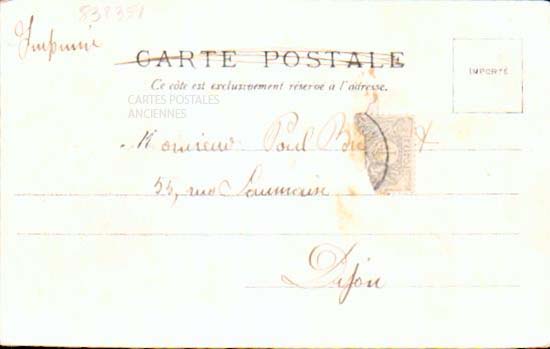 838351
Imprimé
CARTE POSTALE
Ce côté est exclusivement réservé à l'adresse.
IMPORTÉ
CARTES POSTALES
ANCIENNES
Monsieur Paul
55, rue Saumaise
Dijon